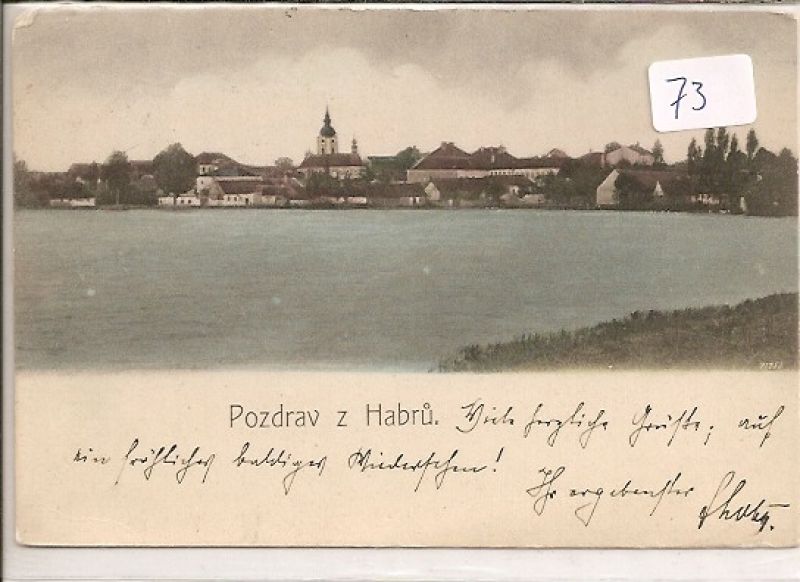 73
Pozdrav z Habrů. Viele herzliche Grüße; auf
ein fröhliches baldiges Wiedersehen!
Ihr ergebenster